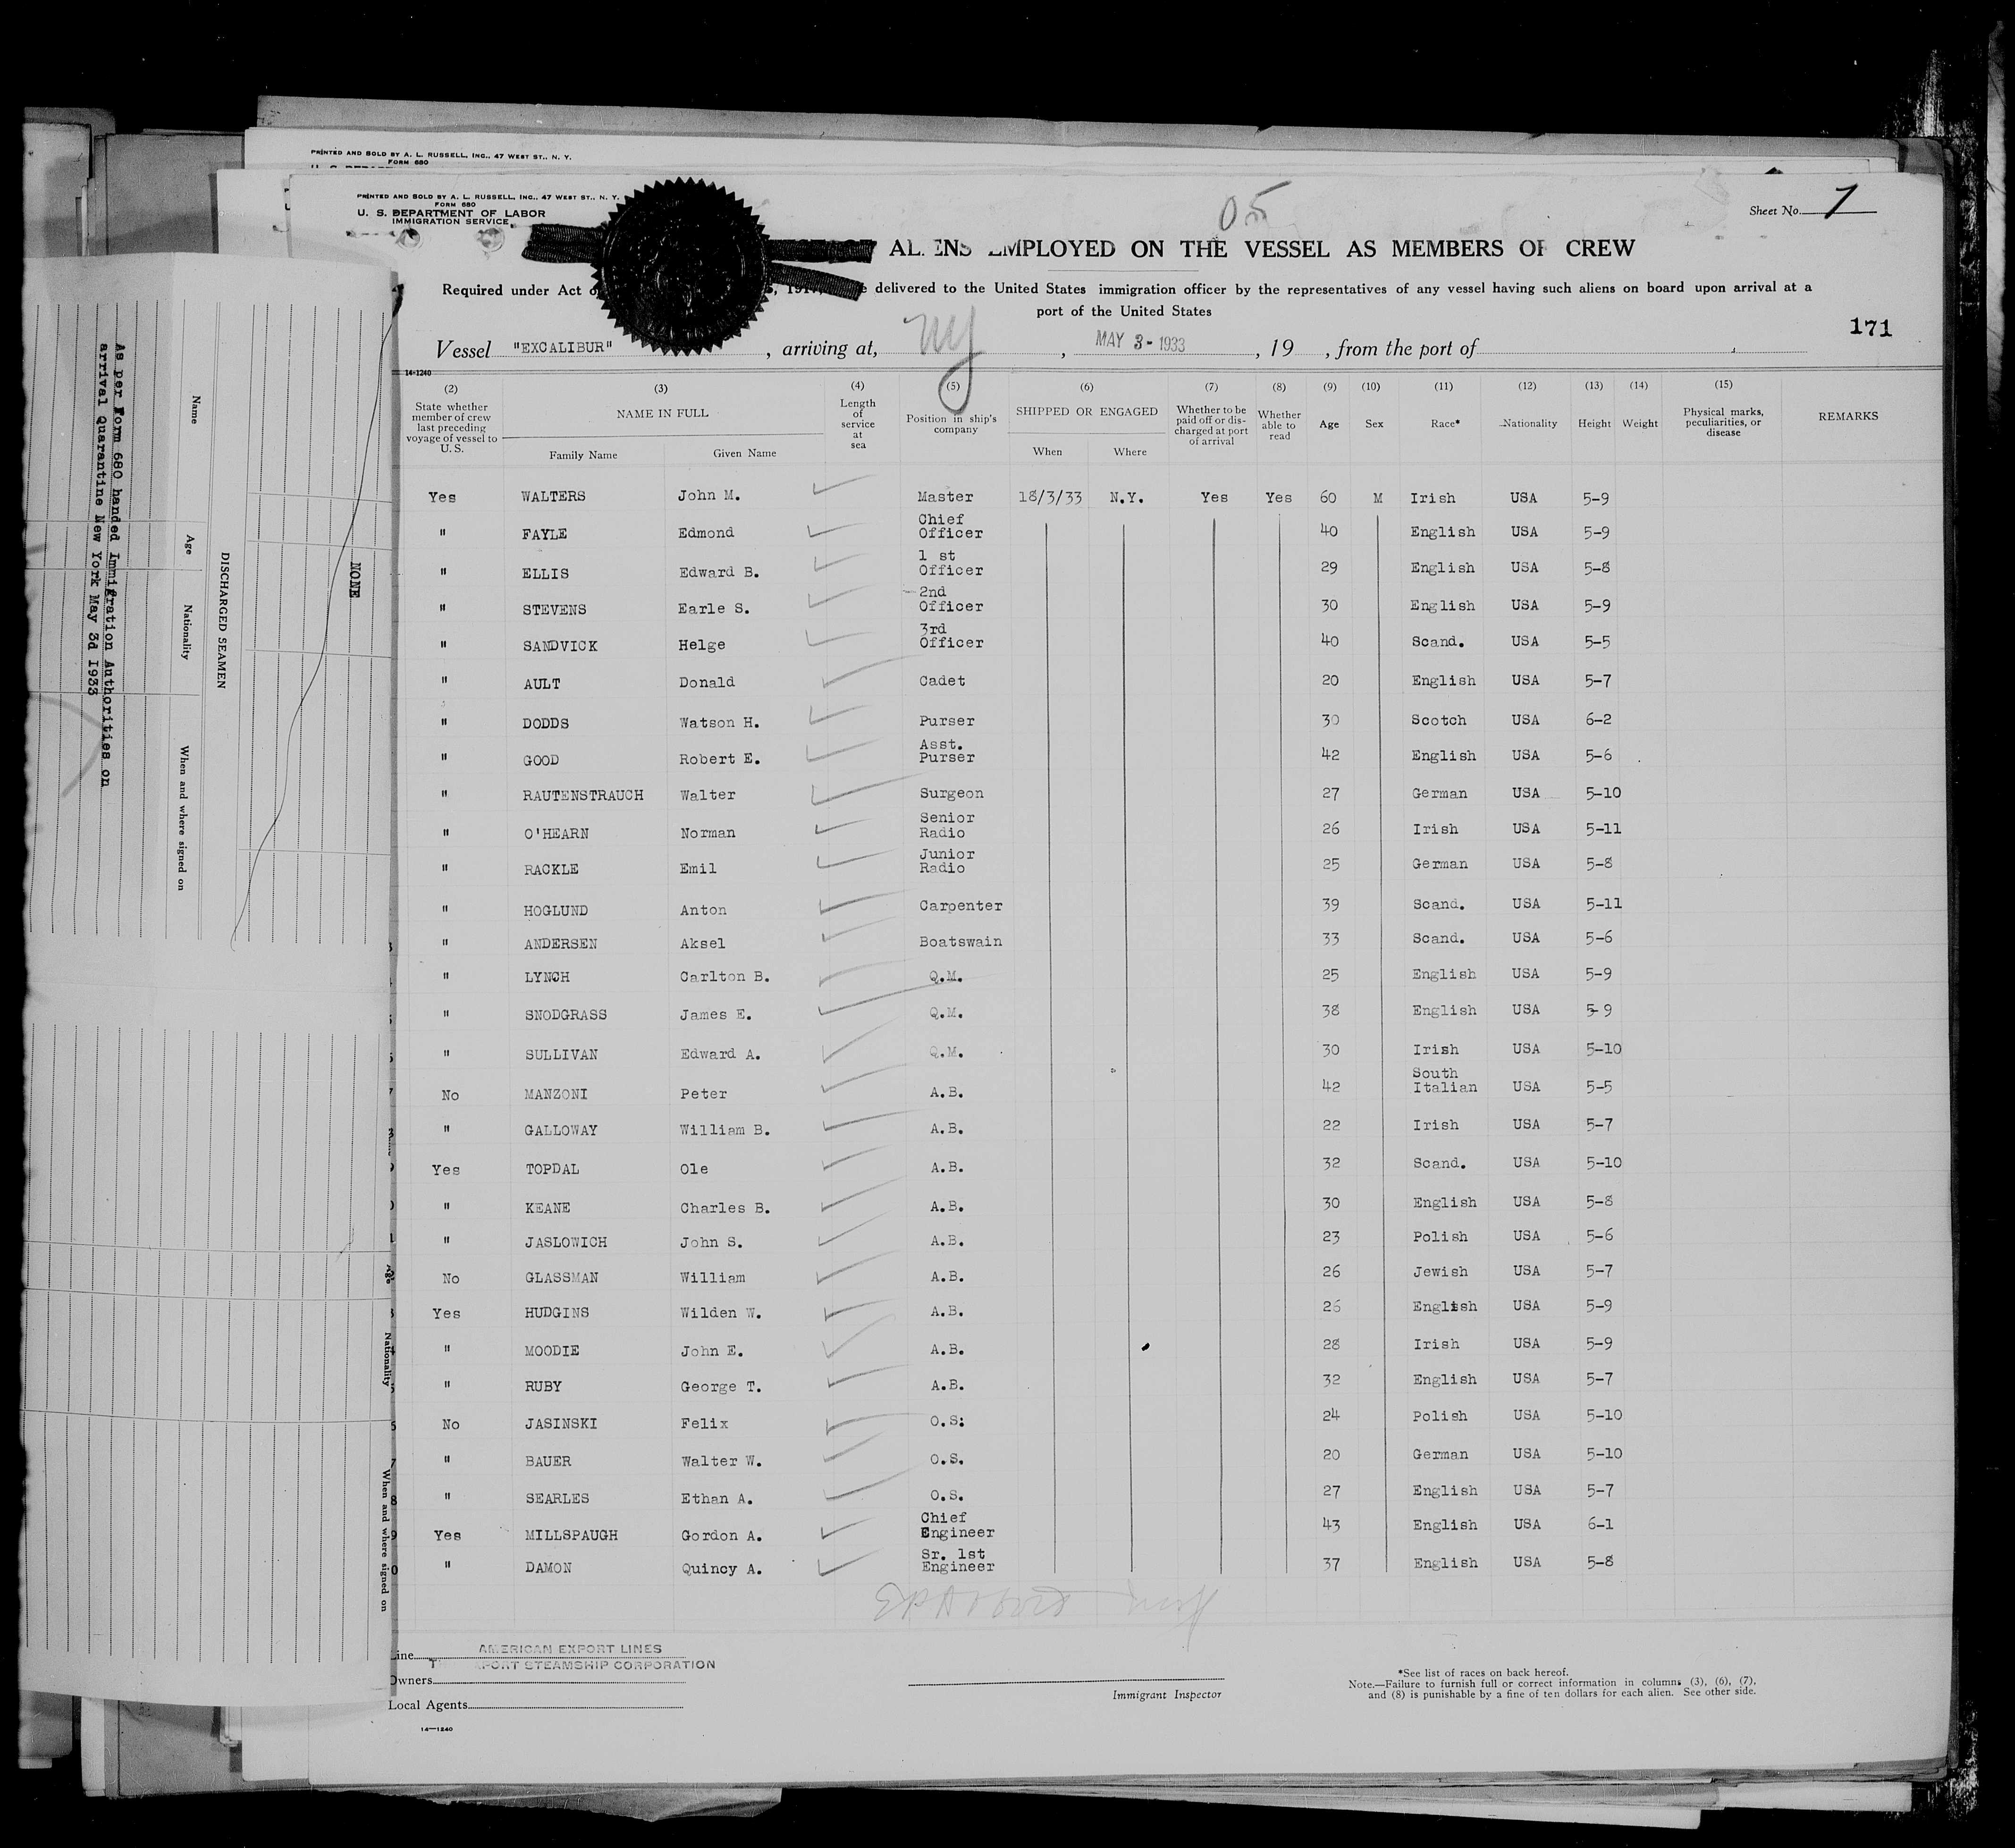 PRINTED AND SOLD BY A. L. RUSSELL, INC., 47 WEST ST., N. Y.
FORM 680
PRINTED AND SOLD BY A. L. RUSSELL, INC., 47 WEST ST., N. Y.
FORM 680
U. S. DEPARTMENT OF LABOR
IMMIGRATION SERVICE
Sheet No. 1
EMPLOYED ON THE VESSEL AS MEMBERS OF CREW
Required under Act delivered to the United States immigration officer by the representatives of any vessel having such aliens on board upon arrival at a
port of the United States
171
Vessel "EXCALIBUR" , arriving at, NY , MAY 3-1933 , 19 , from the port of
14-1240
(2) (3) (4) (5) (6) (7) (8) (9) (10) (11) (12) (13) (14) (15)
State whether member of crew last preceding voyage of vessel to U. S. NAME IN FULL Family Name Given Name Length of service at sea Position in ship's company SHIPPED OR ENGAGED When Where Whether to be paid off or discharged at port of arrival Whether able to read Age Sex Race* Nationality Height Weight Physical marks, peculiarities, or disease REMARKS
Yes WALTERS John M. Master 18/3/33 N.Y. Yes Yes 60 M Irish USA 5-9
" FAYLE Edmond Chief Officer 40 English USA 5-9
" ELLIS Edward B. 1 st Officer 29 English USA 5-8
" STEVENS Earle S. 2nd Officer 30 English USA 5-9
" SANDVICK Helge 3rd Officer 40 Scand. USA 5-5
" AULT Donald Cadet 20 English USA 5-7
" DODDS Watson H. Purser 30 Scotch USA 6-2
" GOOD Robert E. Asst. Purser 42 English USA 5-6
" RAUTENSTRAUCH Walter Surgeon 27 German USA 5-10
" O'HEARN Norman Senior Radio 26 Irish USA 5-11
" RACKLE Emil Junior Radio 25 German USA 5-8
" HOGLUND Anton Carpenter 39 Scand. USA 5-11
" ANDERSEN Aksel Boatswain 33 Scand. USA 5-6
" LYNCH Carlton B. Q.M. 25 English USA 5-9
" SNODGRASS James E. Q.M. 38 English USA 5-9
" SULLIVAN Edward A. Q.M. 30 Irish USA 5-10
No MANZONI Peter A.B. 42 South Italian USA 5-5
" GALLOWAY William B. A.B. 22 Irish USA 5-7
Yes TOPDAL Ole A.B. 32 Scand. USA 5-10
" KEANE Charles B. A.B. 30 English USA 5-8
" JASLOWICH John S. A.B. 23 Polish USA 5-6
No GLASSMAN William A.B. 26 Jewish USA 5-7
Yes HUDGINS Wilden W. A.B. 26 English USA 5-9
" MOODIE John E. A.B. 28 Irish USA 5-9
" RUBY George T. A.B. 32 English USA 5-7
No JASINSKI Felix O.S: 24 Polish USA 5-10
" BAUER Walter W. O.S. 20 German USA 5-10
" SEARLES Ethan A. O.S. 27 English USA 5-7
Yes MILLSPAUGH Gordon A. Chief Engineer 43 English USA 6-1
" DAMON Quincy A. Sr. 1st Engineer 37 English USA 5-8
Line AMERICAN EXPORT LINES
STEAMSHIP CORPORATION
Owners
Local Agents
14—1240
Immigrant Inspector
*See list of races on back hereof.
Note.—Failure to furnish full or correct information in columns (3), (6), (7),
and (8) is punishable by a fine of ten dollars for each alien. See other side.
As per Form 680 handed Immigration Authorities on
arrival Quarantine New York May 3d 1933
DISCHARGED SEAMEN
Name Age Nationality When and where signed on
NONE
Age Nationality When and where signed on